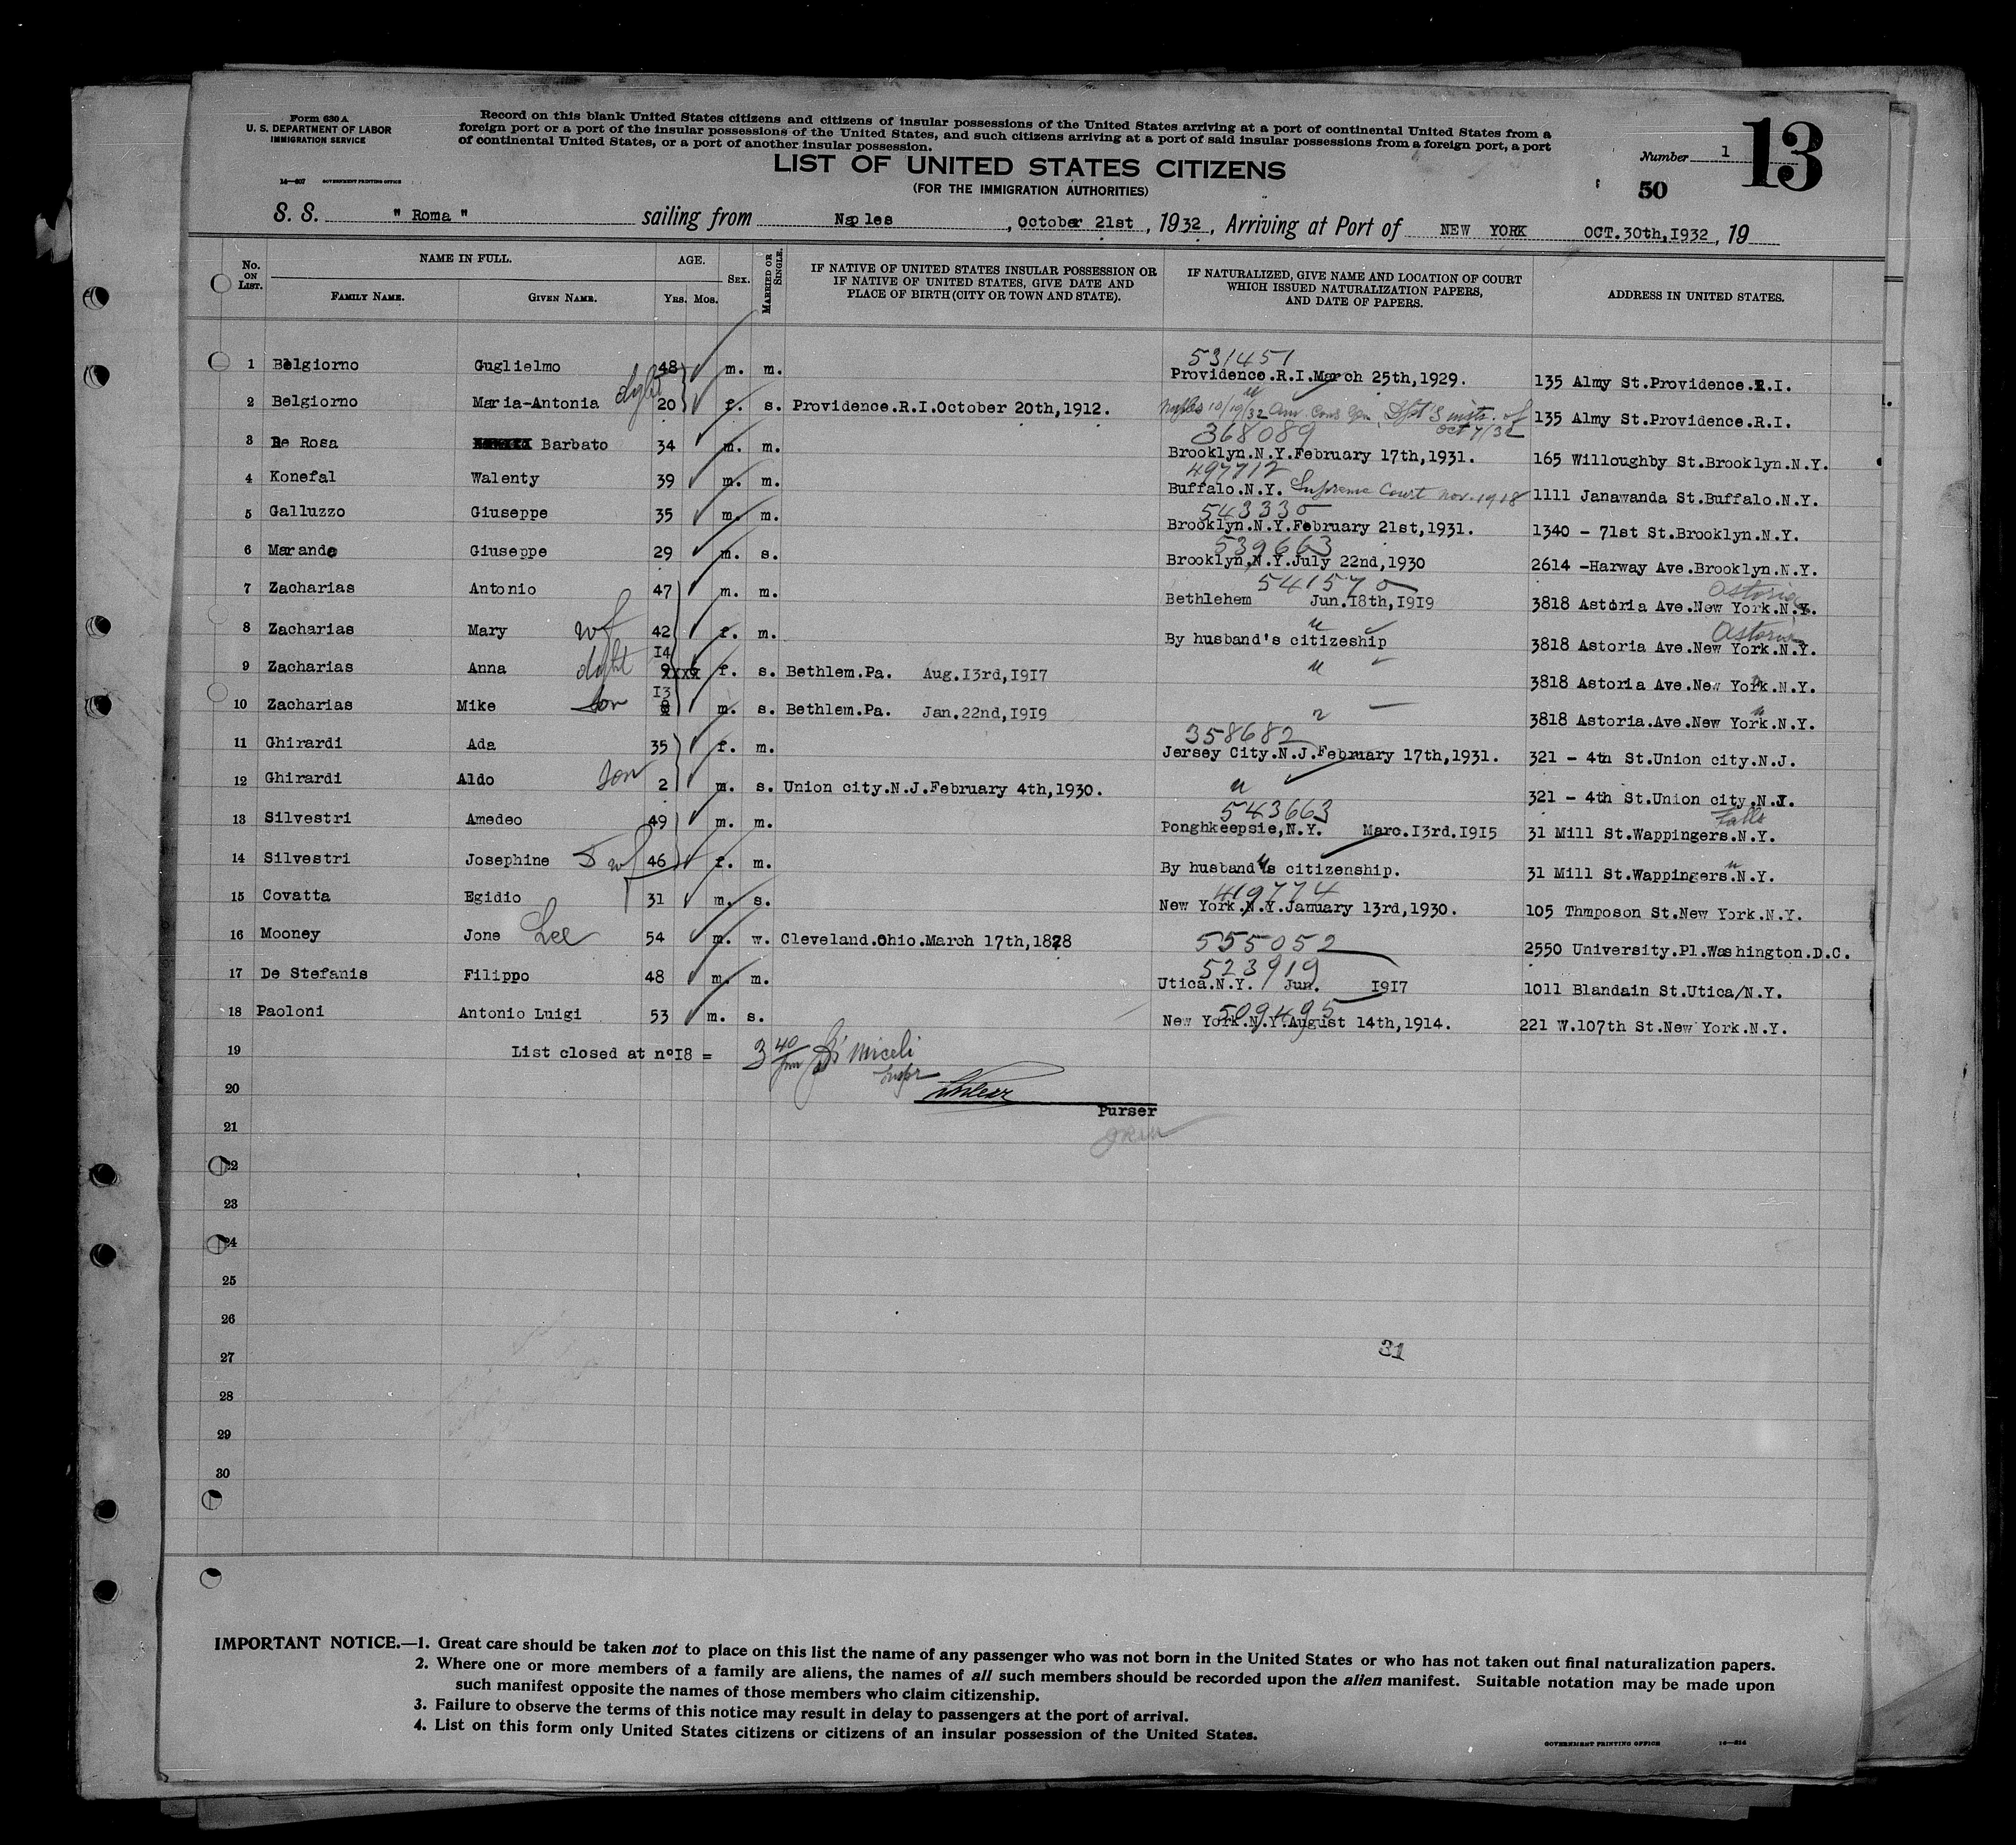 Form 630 A
U. S. DEPARTMENT OF LABOR
IMMIGRATION SERVICE
16—607 GOVERNMENT PRINTING OFFICE
Record on this blank United States citizens and citizens of insular possessions of the United States arriving at a port of continental United States from a
foreign port or a port of the insular possessions of the United States, and such citizens arriving at a port of said insular possessions from a foreign port, a port
of continental United States, or a port of another insular possession.
LIST OF UNITED STATES CITIZENS
(FOR THE IMMIGRATION AUTHORITIES)
Number 1
13
50
S. S. " Roma " sailing from Naples , October 21st , 1932 , Arriving at Port of NEW YORK OCT.30th,I932 , 19
No. ON LIST. NAME IN FULL. FAMILY NAME. GIVEN NAME. AGE. Yrs. Mos. SEX. MARRIED OR SINGLE. IF NATIVE OF UNITED STATES INSULAR POSSESSION OR IF NATIVE OF UNITED STATES, GIVE DATE AND PLACE OF BIRTH (CITY OR TOWN AND STATE). IF NATURALIZED, GIVE NAME AND LOCATION OF COURT WHICH ISSUED NATURALIZATION PAPERS, AND DATE OF PAPERS. ADDRESS IN UNITED STATES.
531451
1 Belgiorno Guglielmo 48 m. m. Providence.R.I.March 25th,1929. 135 Almy St.Providence.R.I.
2 Belgiorno Maria-Antonia dght 20 f. s. Providence.R.I.October 20th,1912. Naples 10/19/32 Am. Cons Gen. Dpt's insts. of Oct 7/32 135 Almy St.Providence.R.I.
368089
3 De Rosa Barbato 34 m. m. Brooklyn.N.Y.February 17th,1931. 165 Willoughby St.Brooklyn.N.Y.
497712
4 Konefal Walenty 39 m. m. Buffalo.N.Y. Supreme Court Nov. 1918 1111 Janawanda St.Buffalo.N.Y.
543330
5 Galluzzo Giuseppe 35 m. m. Brooklyn.N.Y.February 21st,1931. 1340 - 71st St.Brooklyn.N.Y.
539663
6 Marando Giuseppe 29 m. s. Brooklyn.N.Y.July 22nd,1930 2614 -Harway Ave.Brooklyn.N.Y.
541570 Astoria
7 Zacharias Antonio 47 m. m. Bethlehem Jun.I8th,I9I9 3818 Astoria Ave.New York.N.Y.
Astoria
8 Zacharias Mary wf 42 f. m. By husband's citizeship 3818 Astoria Ave.New York.N.Y.
9 Zacharias Anna dght I4 f. s. Bethlem.Pa. Aug.I3rd,I9I7 " 3818 Astoria Ave.New York.N.Y.
10 Zacharias Mike son I3 m. s. Bethlem.Pa. Jan.22nd,I9I9 " 3818 Astoria.Ave.New York.N.Y.
358682
11 Ghirardi Ada 35 f. m. Jersey City.N.J.February 17th,1931. 321 - 4th St.Union city.N.J.
12 Ghirardi Aldo son 2 m. s. Union city.N.J.February 4th,1930. " 321 - 4th St.Union city.N.J.
543663 Falls
13 Silvestri Amedeo 49 m. m. Ponghkeepsie,N.Y. Marc.I3rd.I9I5 31 Mill St.Wappingers.N.Y.
14 Silvestri Josephine wf 46 f. m. By husband's citizenship. 31 Mill St.Wappingers.N.Y.
419774
15 Covatta Egidio 31 m. s. New York.N.Y.January 13rd,1930. 105 Thmposon St.New York.N.Y.
16 Mooney Jone Lee 54 m. w. Cleveland.Ohio.March 17th,1878 555052 2550 University.Pl.Washington.D.C.
523919
17 De Stefanis Filippo 48 m. m. Utica.N.Y. Jun. I9I7 1011 Blandain St.Utica/N.Y.
509495
18 Paoloni Antonio Luigi 53 m. s. New York.N.Y.August 14th,1914. 221 W.107th St.New York.N.Y.
19 List closed at n°I8 = 3 40 pm Miceli
Inspr
20
Purser
21
22
23
24
25
26
27
31
28
29
30
IMPORTANT NOTICE.—1. Great care should be taken not to place on this list the name of any passenger who was not born in the United States or who has not taken out final naturalization papers.
2. Where one or more members of a family are aliens, the names of all such members should be recorded upon the alien manifest. Suitable notation may be made upon
such manifest opposite the names of those members who claim citizenship.
3. Failure to observe the terms of this notice may result in delay to passengers at the port of arrival.
4. List on this form only United States citizens or citizens of an insular possession of the United States.
GOVERNMENT PRINTING OFFICE